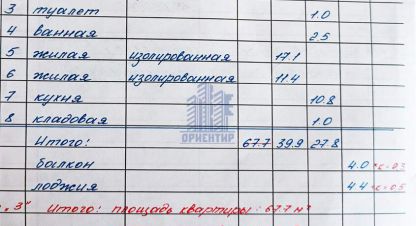 3 туалет 1.0
4 ванная 2.5
5 жилая изолированная 17.1
6 жилая изолированная 11.4
7 кухня 10.8
8 кладовая 1.0
ОРИЕНТИР
Итого: 67.7 39.9 27.8
балкон 4.0 к=0.3
лоджия 4.4 к=0.5
„3" Итого: площадь квартиры: 67.7 м²